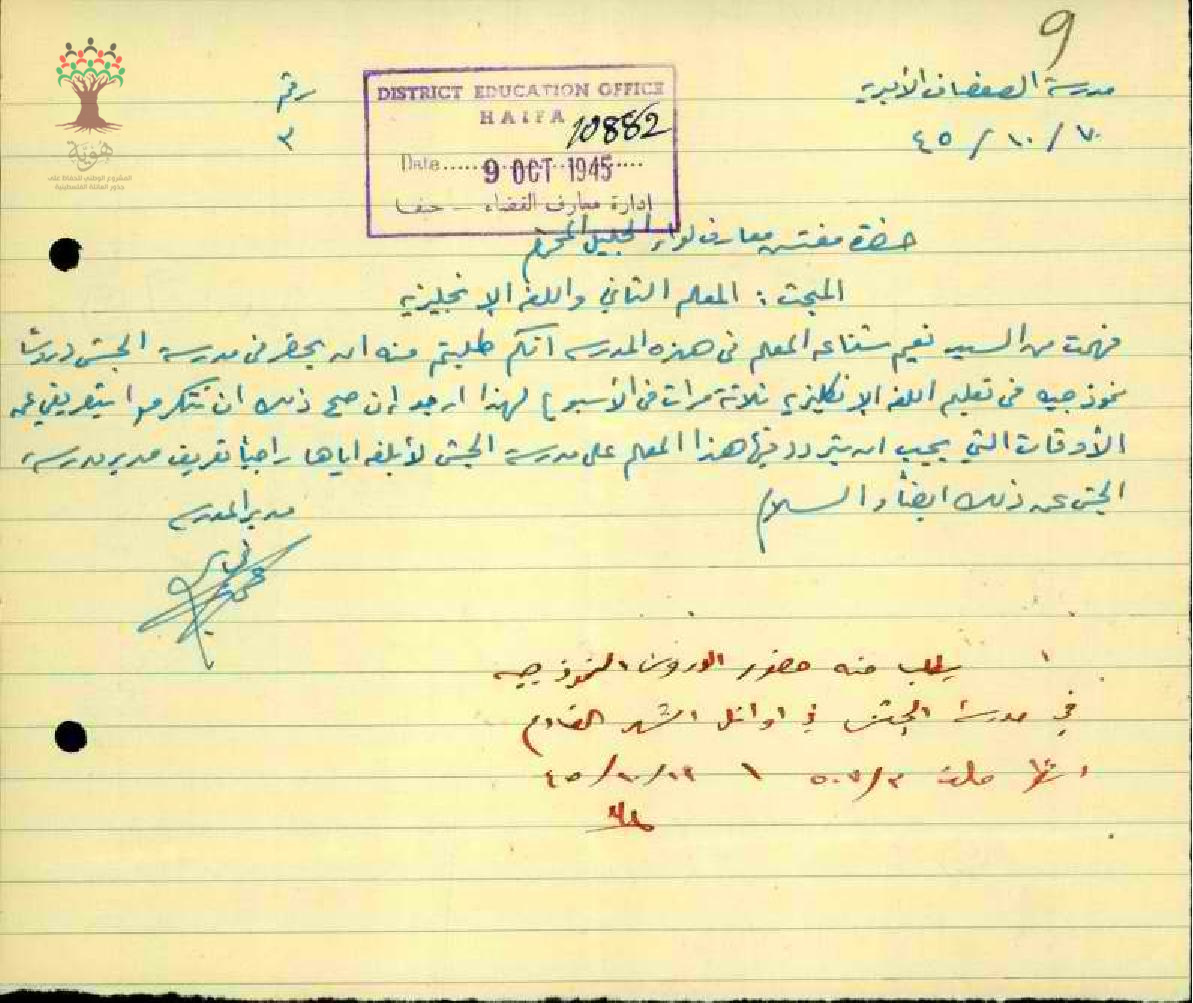 9
مدرسة الصفصاف الأميرية
٧ / ١٠ / ٤٥
رقم
٣
DISTRICT EDUCATION OFFICE
HAIFA
10882
Date 9 OCT 1945
إدارة معارف القضاء — حيفا
هُوِيَّة
المشروع الوطني للحفاظ على
جذور العائلة الفلسطينية
حضرة مفتش معارف لواء الجليل المحترم
المبحث : المعلم الثاني واللغة الإنجليزية
فهمت من السيد نعيم المعلم في هذه المدرسة أنكم طلبتم منه ان يحضر في مدرسة الجش دروسًا
نموذجيه في تعليم اللغة الإنكليزيه ثلاثة مرات في الأسبوع لهذا ارجو إن صح ذلك ان تتكرموا بتعريفي عن
الأوقات التي يجب ان يتردد فيها هذا المعلم على مدرسة الجش لأبلغه اياها راجياً تعريف مدير مدرسة
الجش عن ذلك ايضاً والسلام
مدير المدرسة
١ يطلب منه حضور الدروس النموذجيه
في مدرسة الجش في اوائل الشهر القادم